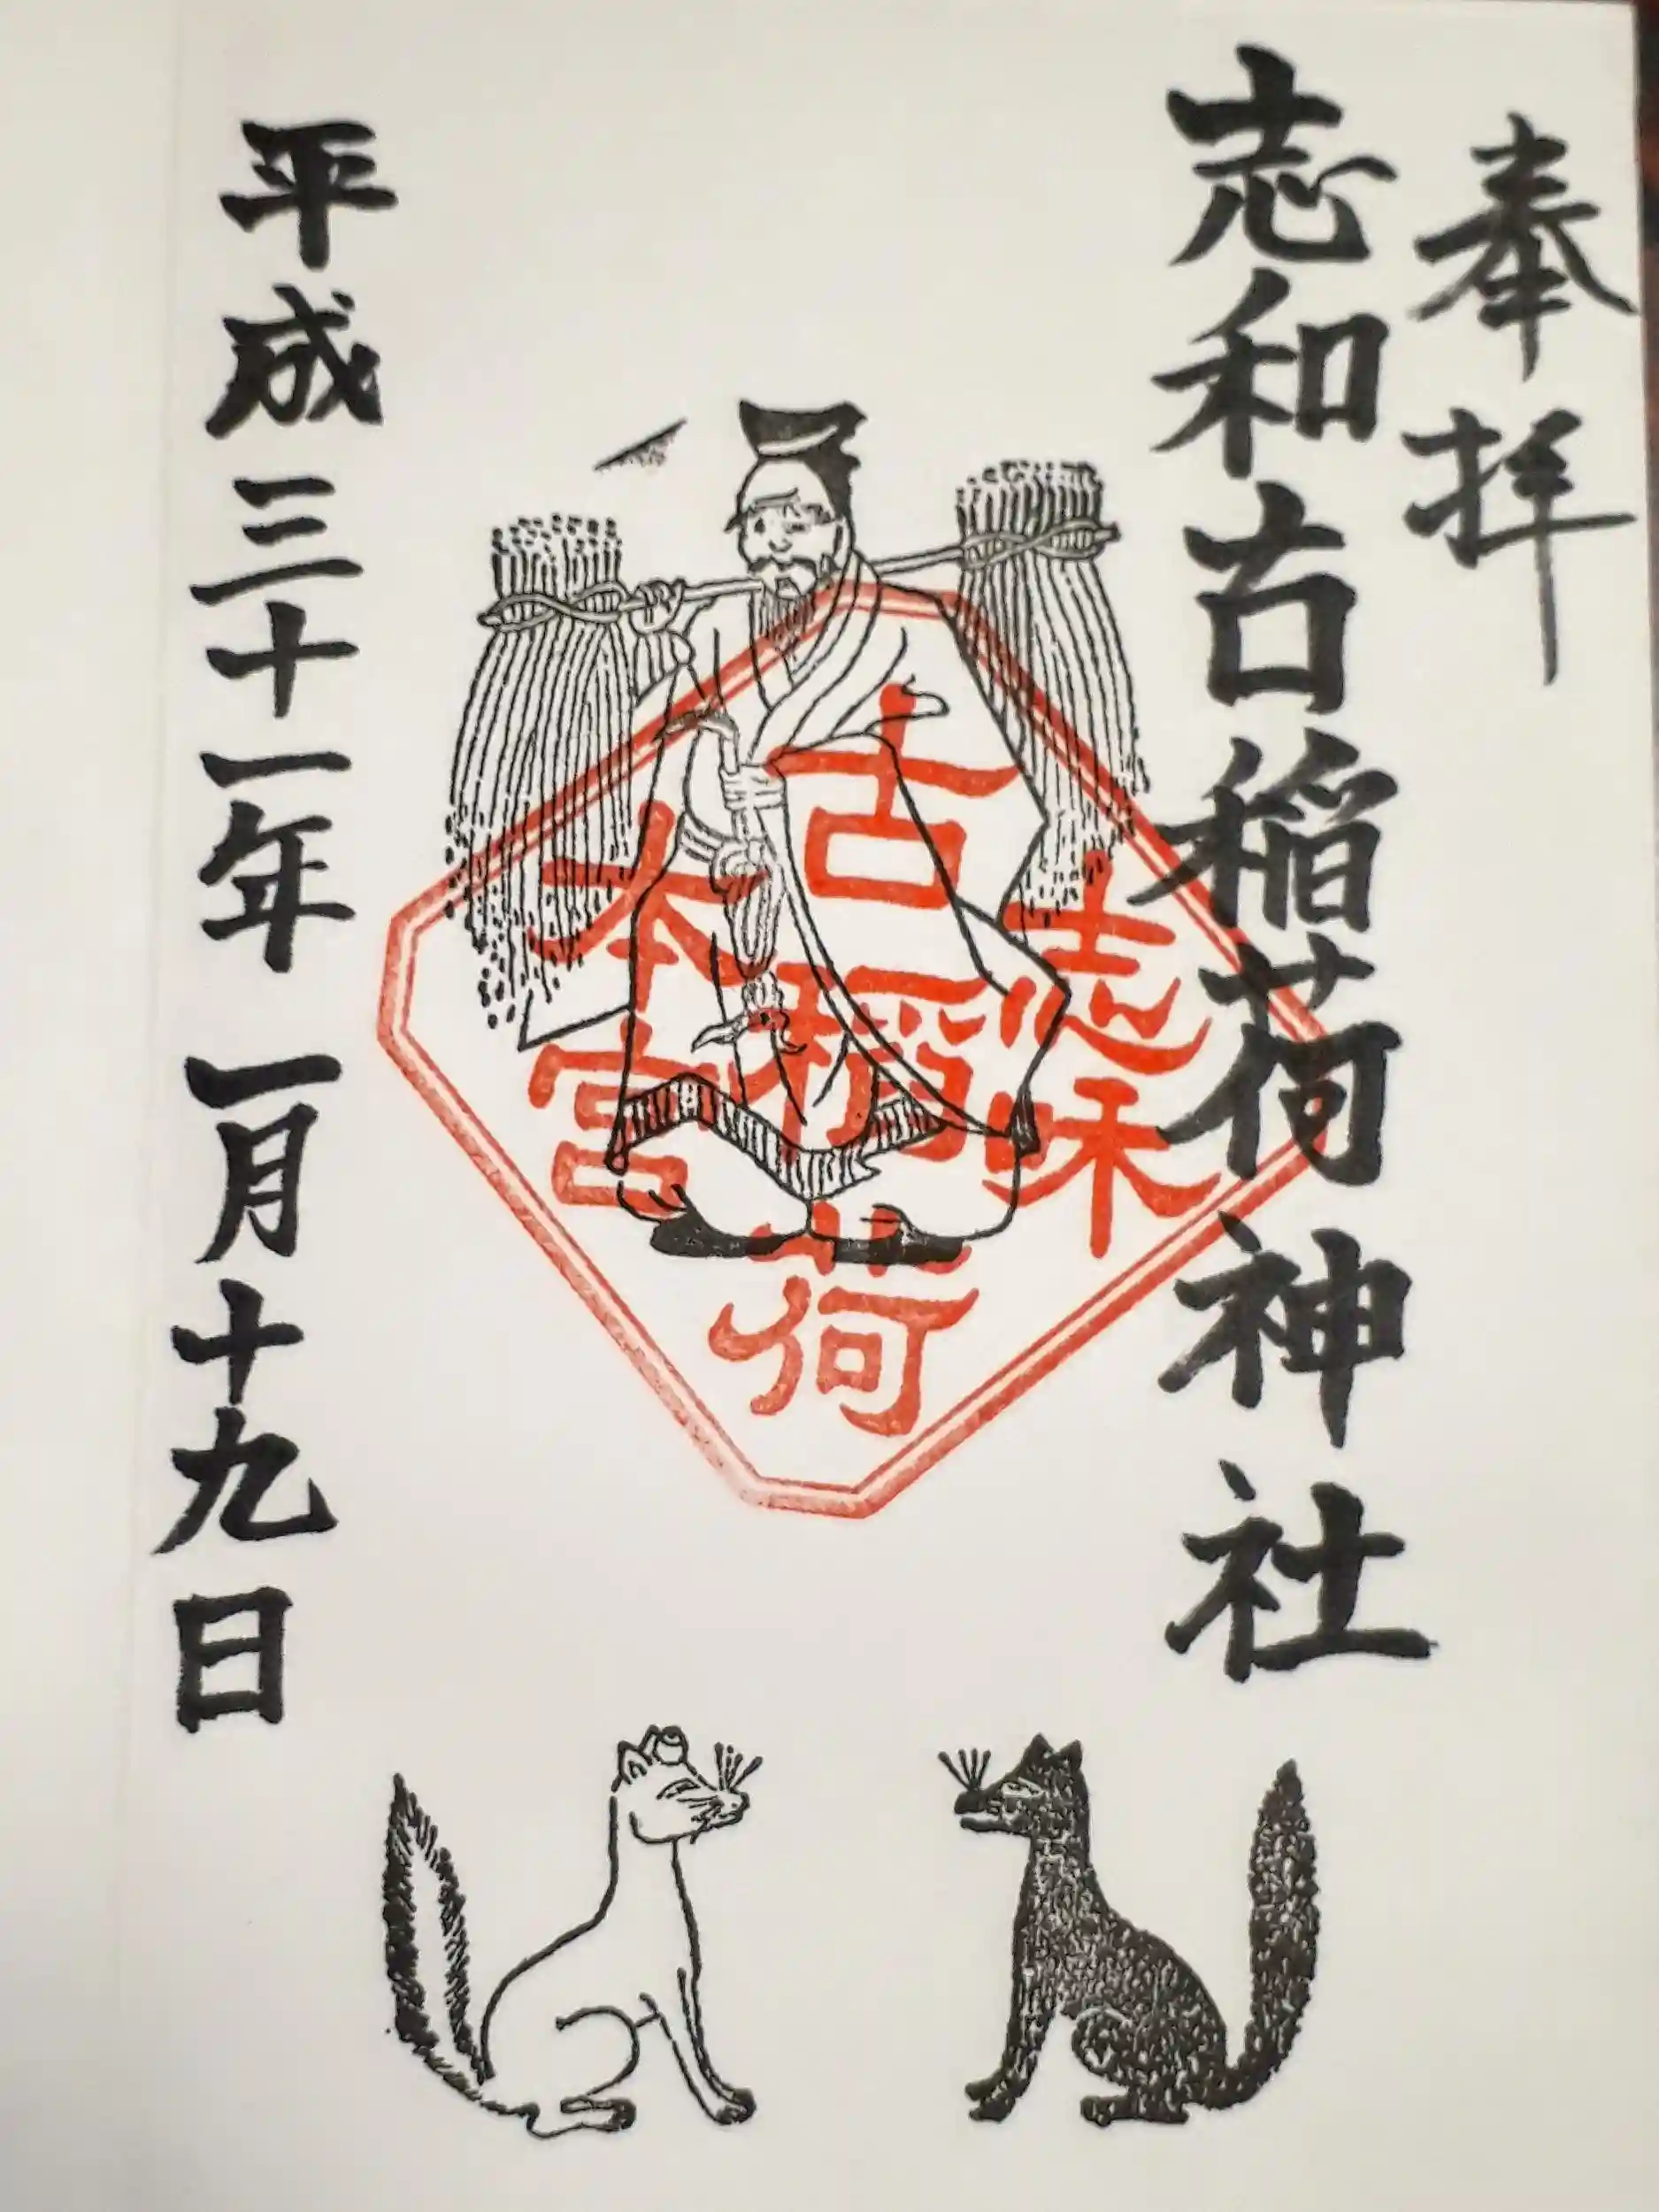 奉拝
志和古稲荷神社
志味
古稲荷
本宮
平成三十一年一月十九日